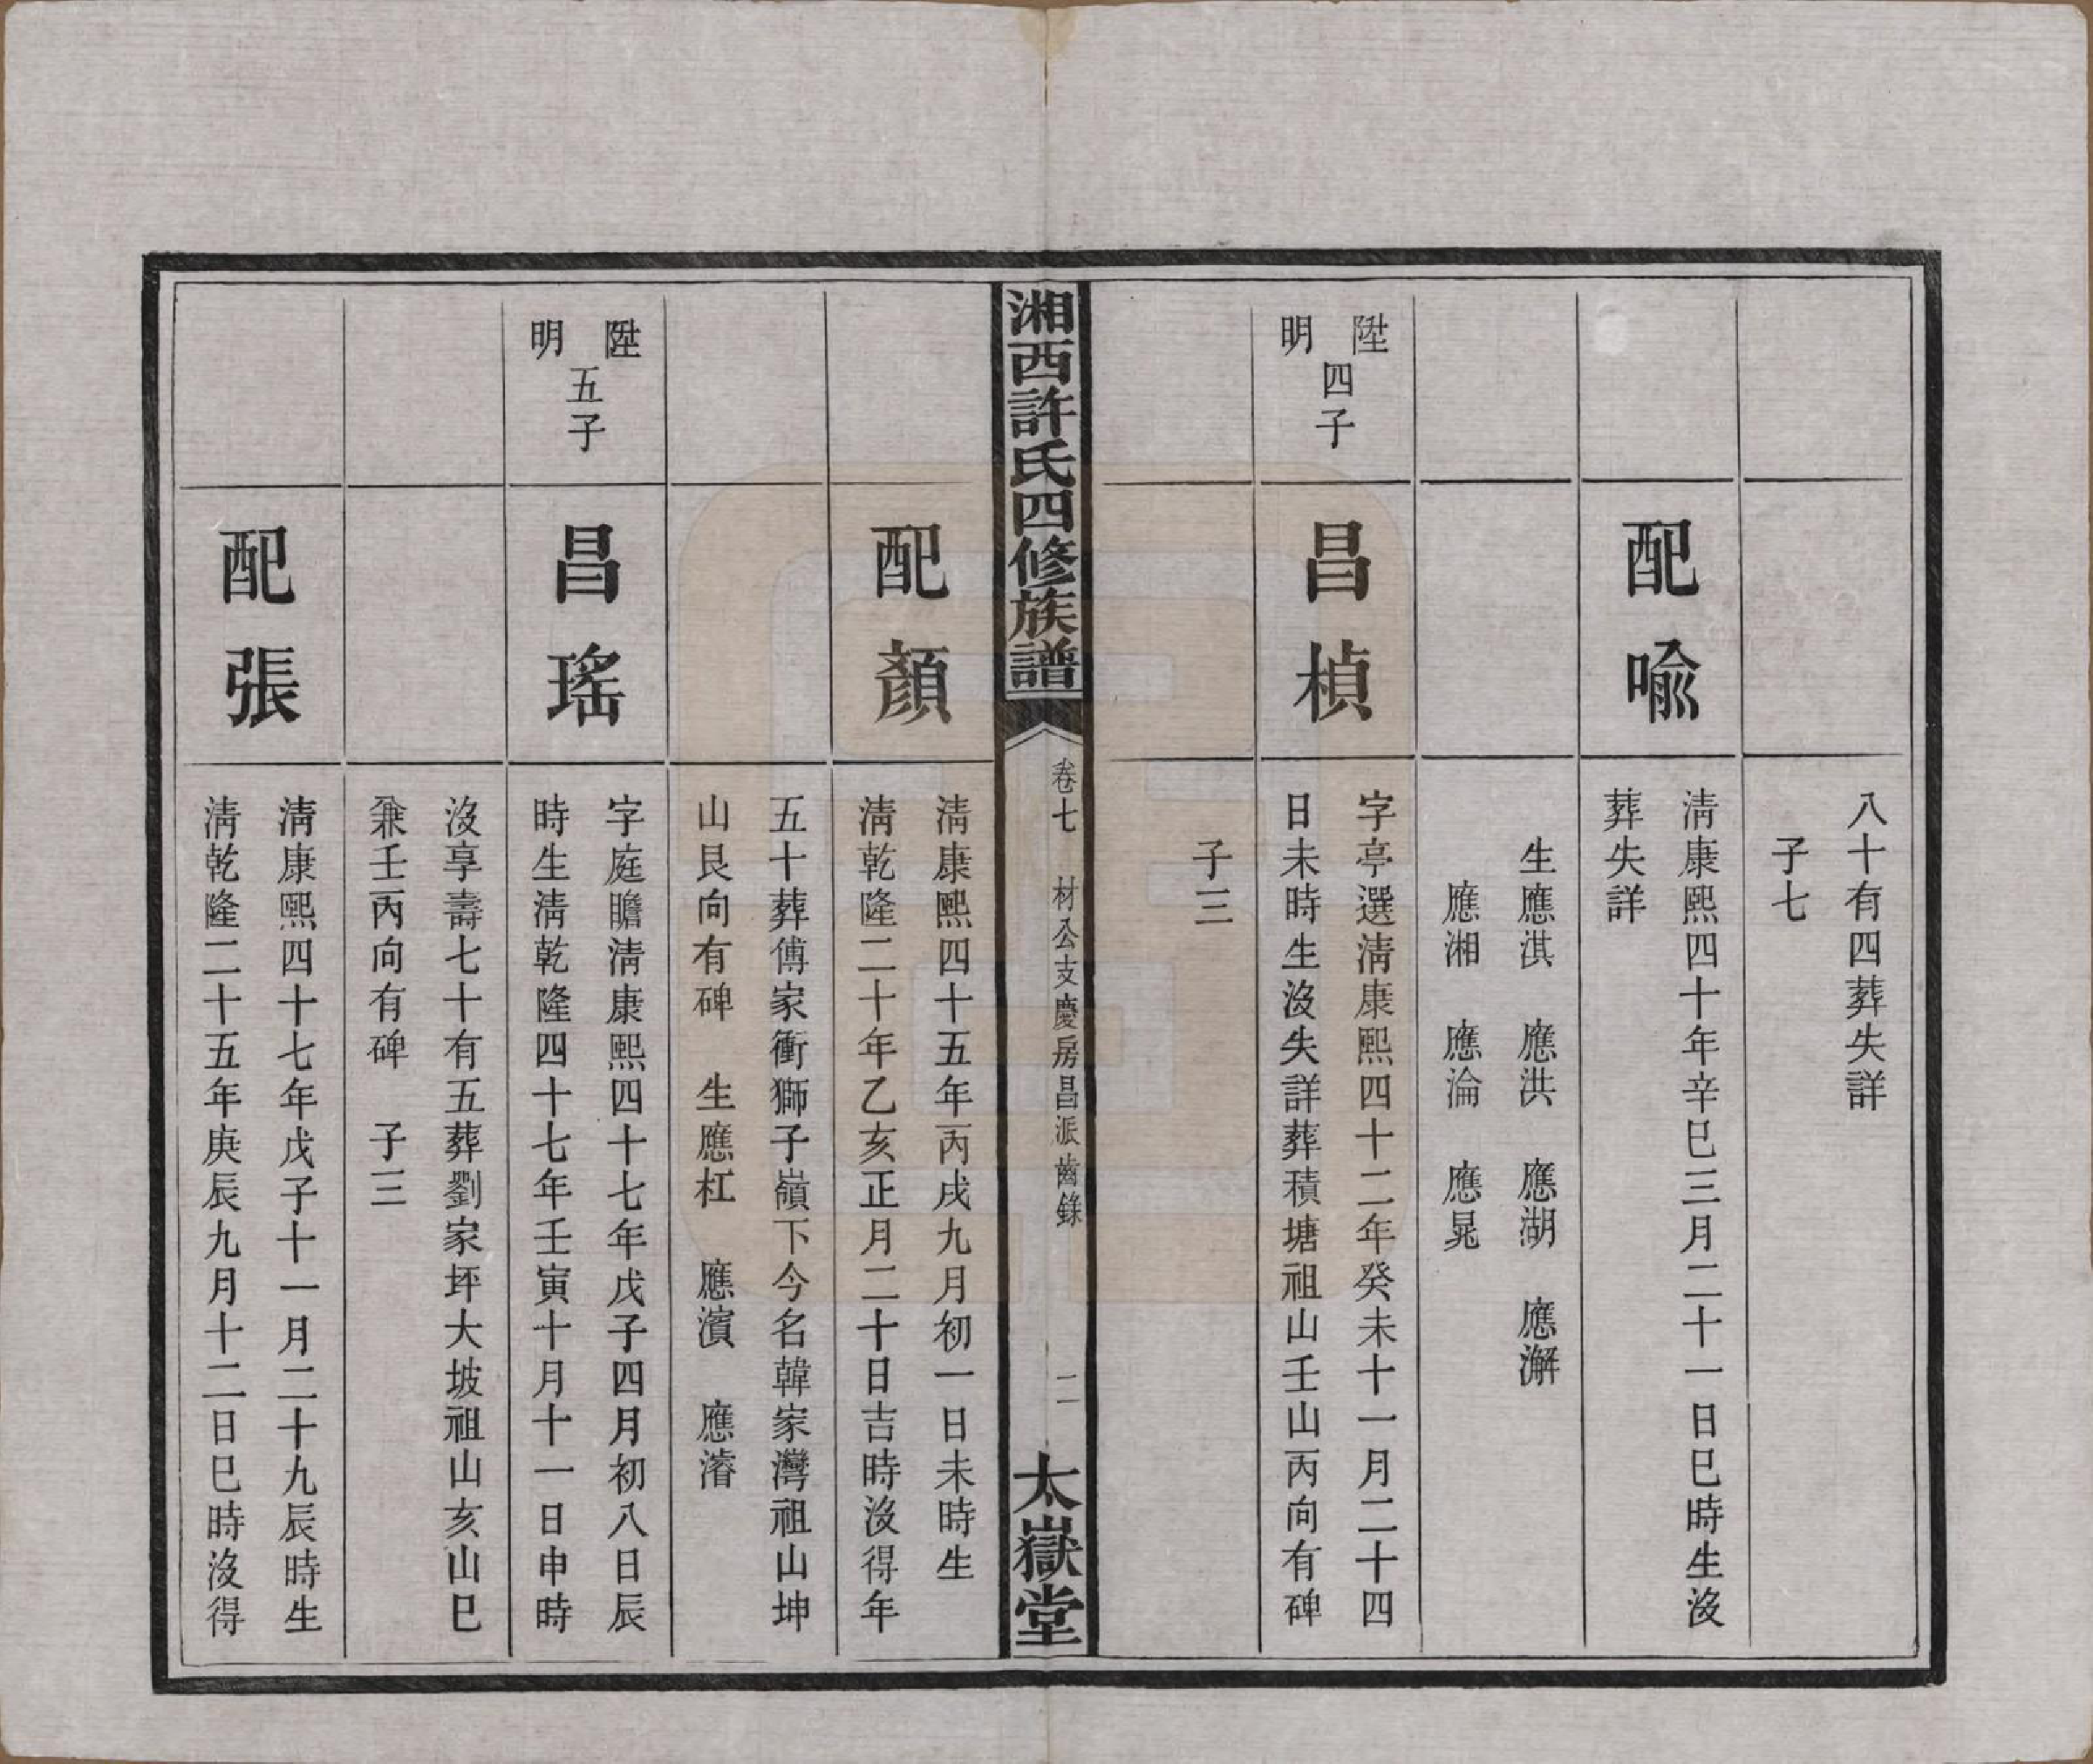 八十有四葬失詳
子七
配喻
清康熙四十年辛巳三月二十一日巳時生沒
葬失詳
生應淇　應洪　應湖　應澥
應湘　應淪　應晁
陞明四子
昌楨
字亭選清康熙四十二年癸未十一月二十四
日未時生沒失詳葬積塘祖山壬山丙向有碑
子三
湘西許氏四修族譜
卷七　材公支慶房昌派齒錄
二
太嶽堂
配顏
清康熙四十五年丙戌九月初一日未時生
清乾隆二十年乙亥正月二十日吉時沒得年
五十葬傅家衝獅子嶺下今名韓家灣祖山坤
山艮向有碑　生應杠　應濱　應濬
陞明五子
昌瑤
字庭瞻清康熙四十七年戊子四月初八日辰
時生清乾隆四十七年壬寅十月十一日申時
沒享壽七十有五葬劉家坪大坡祖山亥山巳
兼壬丙向有碑　子三
配張
清康熙四十七年戊子十一月二十九辰時生
清乾隆二十五年庚辰九月十二日巳時沒得